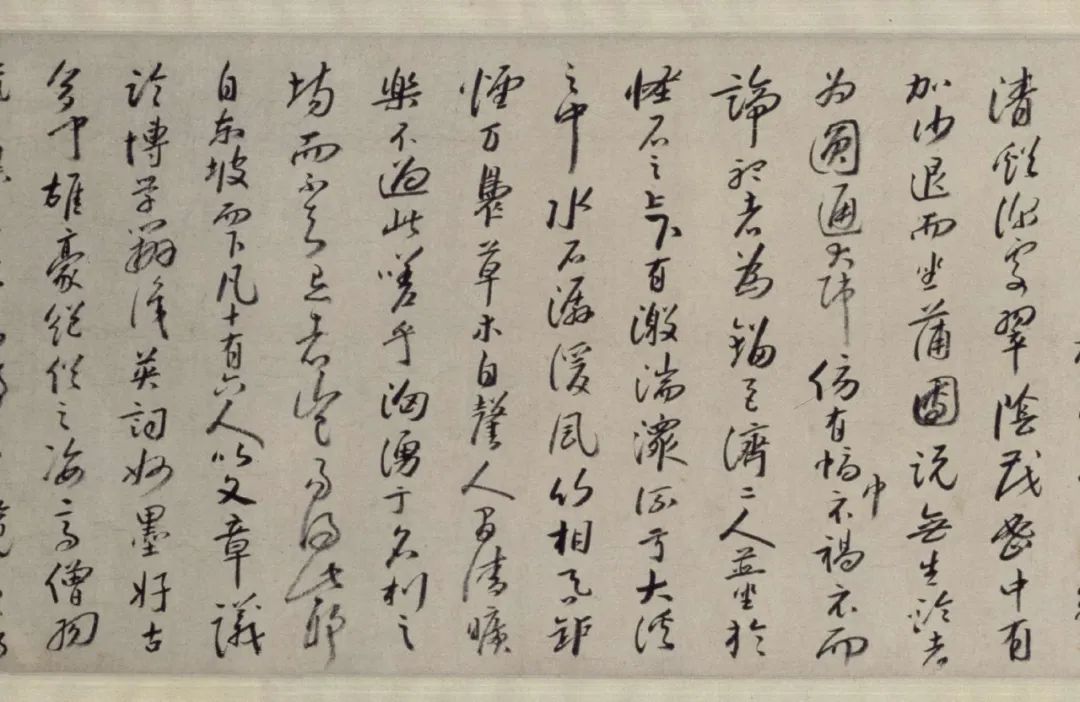 清谿深處翠陰茂密中有
加沙退而坐蒲團説無生論者
为圓通大师傍有幅巾褐衣而
諦聽者為劉巨濟二人並坐於
怪石之上下有激湍潨流于大溪
之中水石潺湲風竹相吞鈩
煙方裊草木自馨人間清曠
樂不過此嗟乎洶湧于名利之
場而不知者豈易得此耶
自東坡而下凡十有六人以文章議
論博學辨識英詞妙墨好古
多聞雄豪絕俗之姿高僧羽